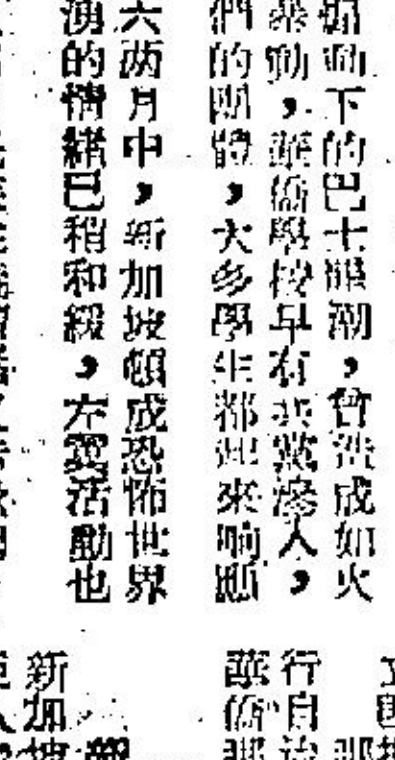 煽動下的巴士罷潮，曾造成如火
暴動，華僑學校早有共黨滲人，
們的團體，大多學生都起來响應
六两月中，新加坡頓成恐怖世界
湧的情緒巳稍和緩，左翼活動也
行自治
華僑那
新加坡